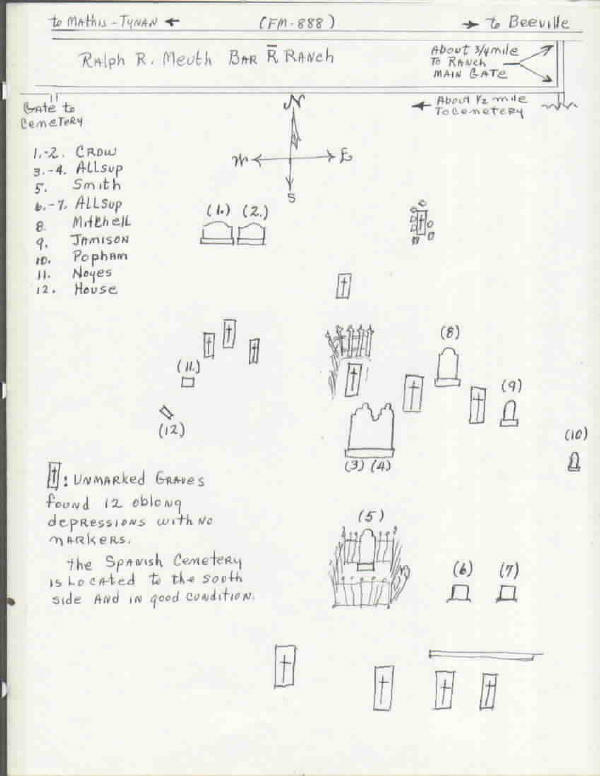 to Mathis - Tynan ← (FM-888) → to Beeville
Ralph R. Meuth Bar R Ranch
About 3/4 mile
To Ranch
Main Gate
Gate to
Cemetery
← About 1/2 mile
To Cemetery
N
W E
S
1.-2. Crow
3.-4. Allsup
5. Smith
6.-7. Allsup
8. Mitchell
9. Jamison
10. Popham
11. Noyes
12. House
(1.) (2.)
(8)
(11.)
(9)
(12)
(10)
(3) (4)
: Unmarked Graves
found 12 oblong
depressions with no
markers.
(5)
The Spanish Cemetery
is Located to the south
side and in good condition.
(6) (7)